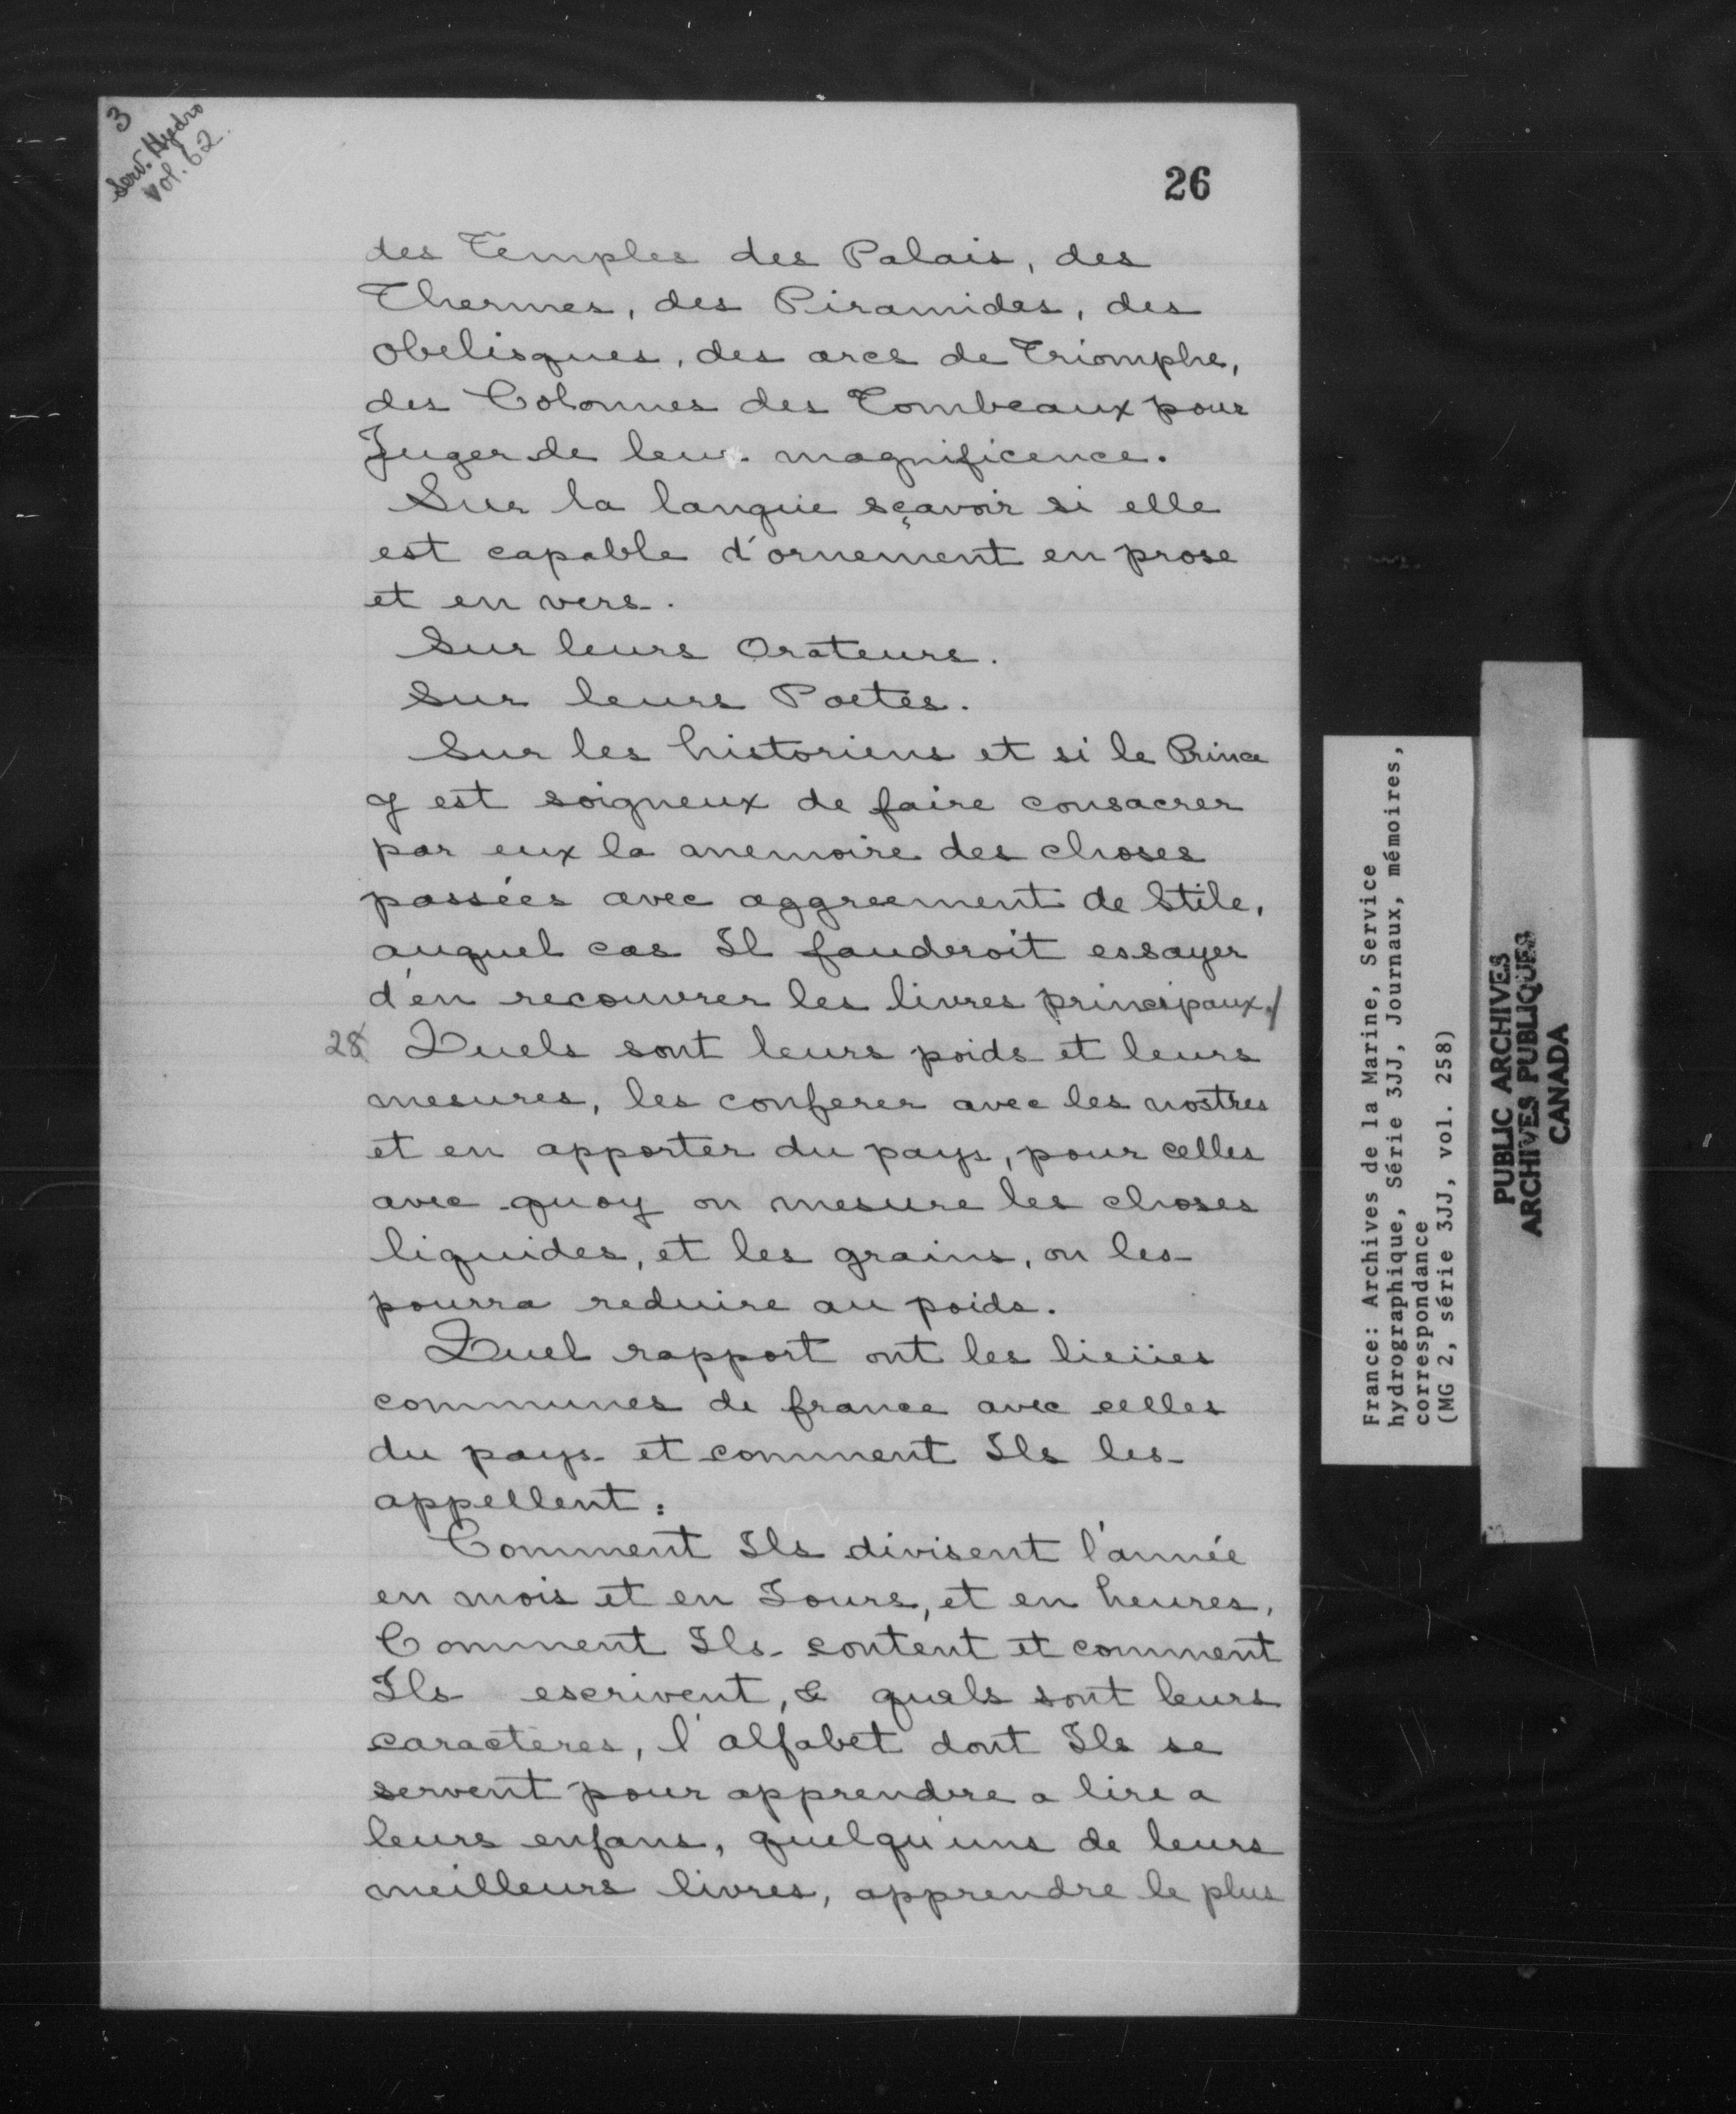 3
Serv. Hydro
Vol. 62.
26
des Temples des Palais, des
Thermes, des Piramides, des
obelisques, des arcs de Triomphe,
des Colonnes des Tombeaux pour
Juger de leur magnificence.
Sur la langue sçavoir si elle
est capable d'ornement en prose
et en vers.
Sur leurs Orateurs.
Sur leurs Poetes.
Sur les historiens et si le Prince
y est soigneux de faire consacrer
par eux la memoire des choses
passées avec aggreement de Stile,
auquel cas Il fauderoit essayer
d'en recouvrer les livres principaux./
28 Quels sont leurs poids et leurs
mesures, les conferer avec les nostres
et en apporter du pays, pour celles
avec quoy on mesure les choses
liquides, et les grains, on les
pourra reduire au poids.
Quel rapport ont les lieües
communes de france avec celles
du pays et comment Ils les
appellent:
Comment Ils divisent l'année
en mois et en Jours, et en heures,
Comment Ils content et comment
Ils escrivent, & quels sont leurs
caracteres, l'alfabet dont Ils se
servent pour apprendre a lire a
leurs enfans, quelqu'uns de leurs
meilleurs livres, apprendre le plus
France: Archives de la Marine, Service
hydrographique, Série 3JJ, Journaux, mémoires,
correspondance
(MG 2, série 3JJ, vol. 258)
PUBLIC ARCHIVES
ARCHIVES PUBLIQUES
CANADA